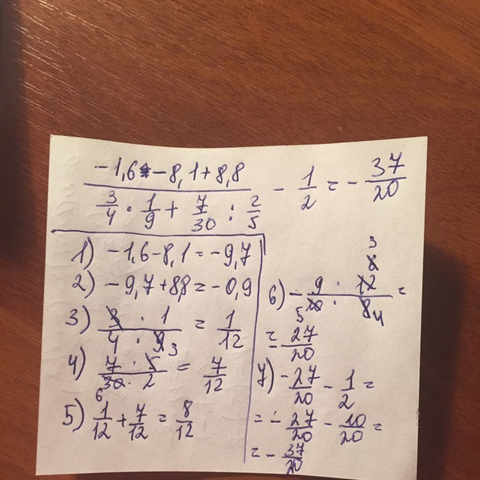 (-1,6 - 8,1 + 8,8) / (3/4 · 1/9 + 7/30 : 2/5) - 1/2 = - 37/20
1) -1,6 - 8,1 = -9,7
2) -9,7 + 8,8 = -0,9
3) (3 · 1) / (4 · 9 3) = 1/12
4) (7 · 5) / (30 6 · 2) = 7/12
5) 1/12 + 7/12 = 8/12
6) - (9 · 12 6 3) / (10 5 · 8 4) =
= - 27/20
7) - 27/20 - 1/2 =
= - 27/20 - 10/20 =
= - 37/20